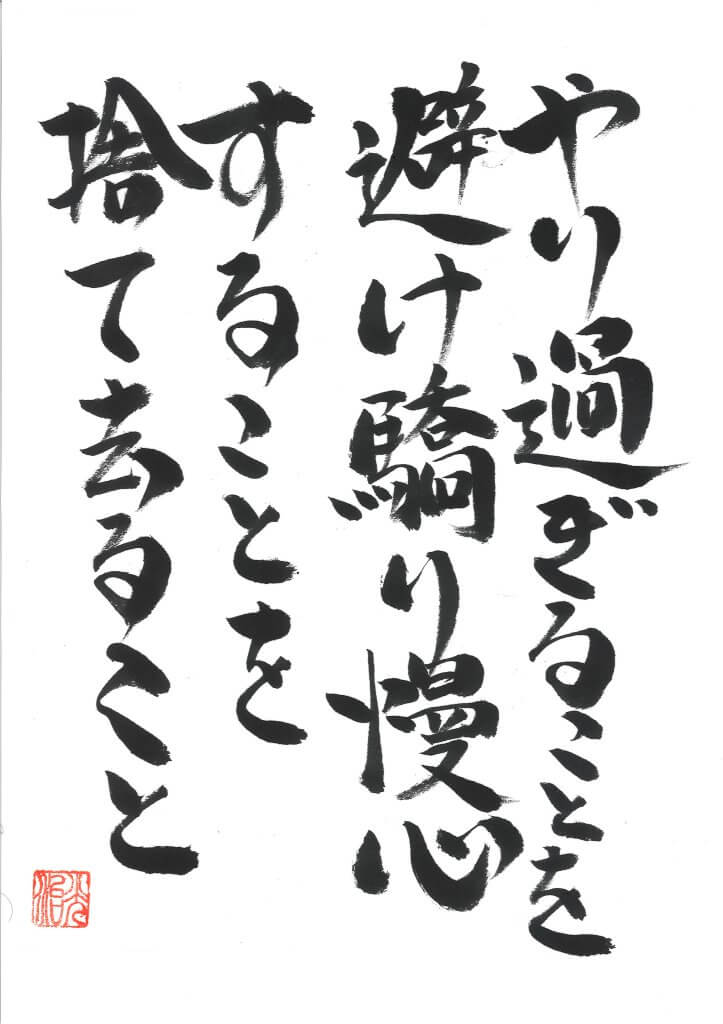 やり過ぎることを
避け驕り慢心
することを
捨て去ること